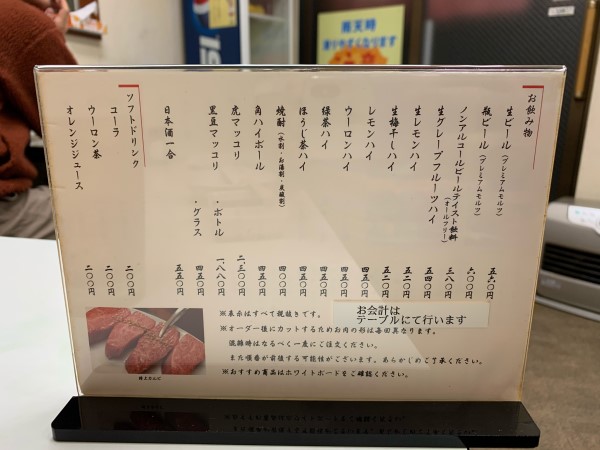 雨天時
滑りやすくなります
お飲み物
生ビール(プレミアムモルツ) 五六〇円
瓶ビール(プレミアムモルツ) 六〇〇円
ノンアルコールビールテイスト飲料(オールフリー) 三八〇円
生グレープフルーツハイ 五四〇円
生レモンハイ 五二〇円
生梅干しハイ 五二〇円
レモンハイ 四五〇円
ウーロンハイ 四五〇円
緑茶ハイ 四五〇円
ほうじ茶ハイ 四五〇円
焼酎(水割・お湯割・炭酸割) 四〇〇円
角ハイボール 四五〇円
虎マッコリ 二、三〇〇円
黒豆マッコリ ・ボトル 一、八八〇円
・グラス 四五〇円
日本酒一合 五五〇円
ソフトドリンク
コーラ 二〇〇円
ウーロン茶 二〇〇円
オレンジジュース 二〇〇円
お会計は
テーブルにて行います
※表示はすべて税抜きです。
※オーダー後にカットするためお肉の形は毎回異なります。
混雑時はなるべく一度にご注文ください。
また順番が前後する可能性がございます。あらかじめご了承ください。
※おすすめ商品はホワイトボードをご確認ください。